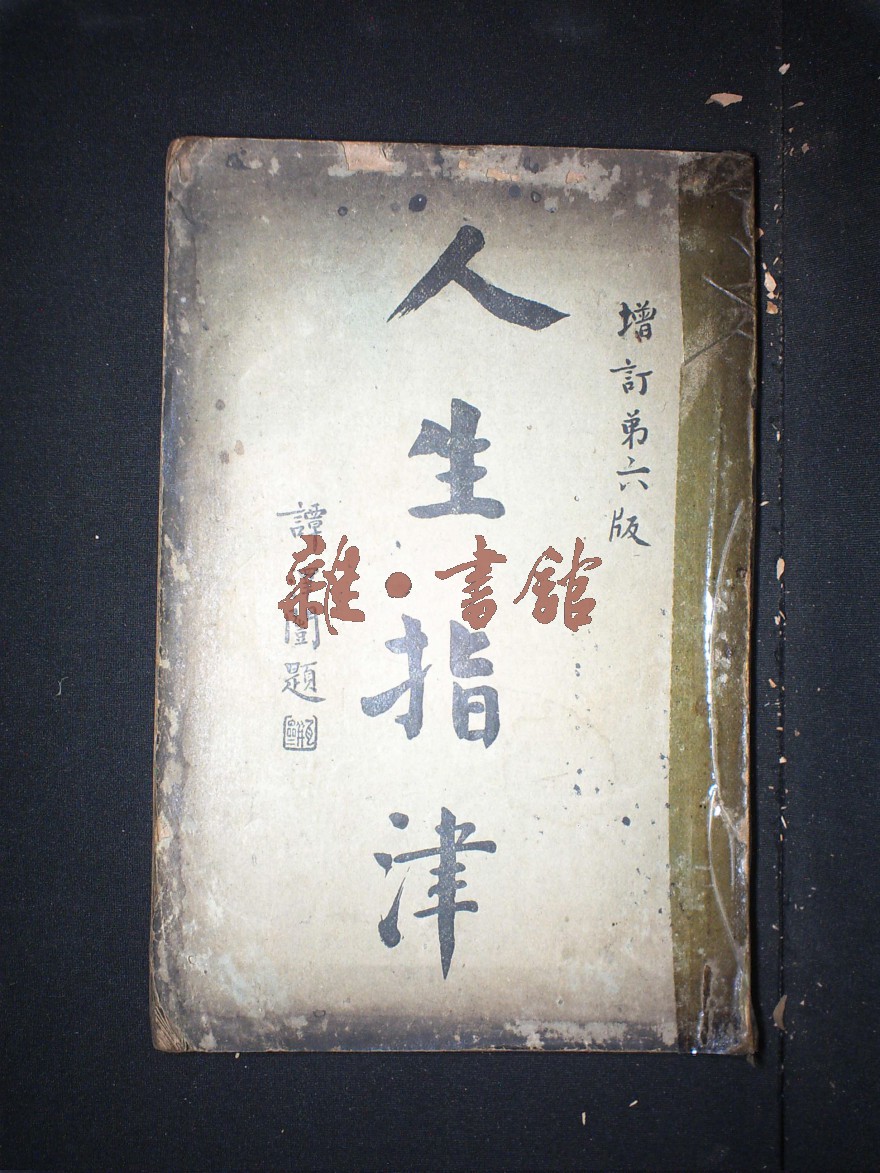 增訂第六版
人生指津
譚闓題
雜·書館